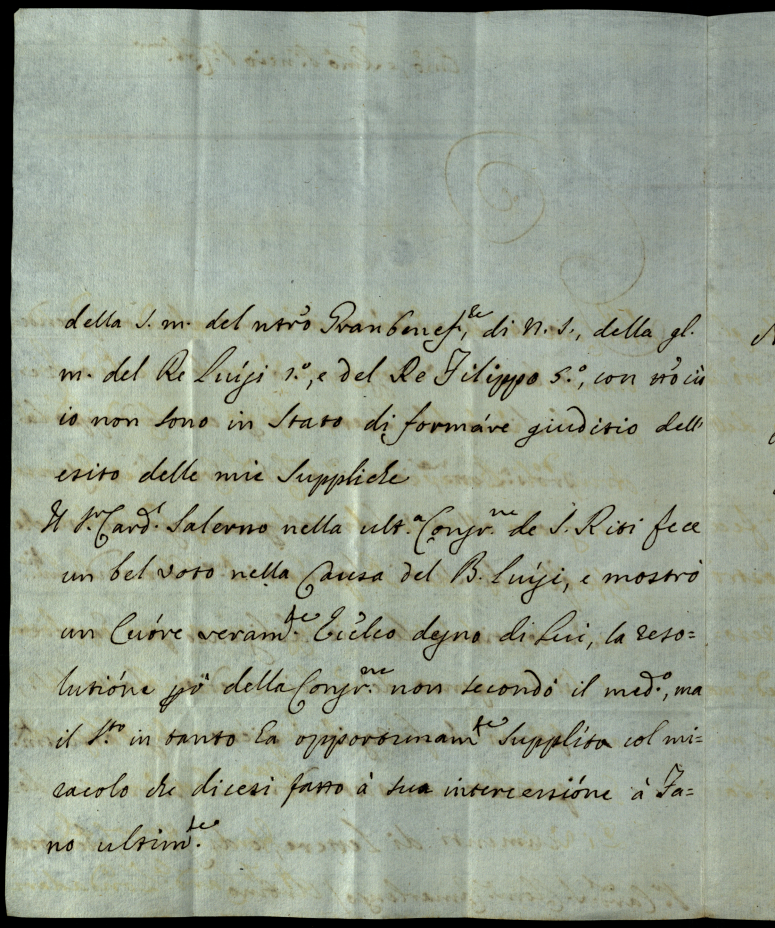 della S. m. del ntro Granbenef.re, di N. S., della gl.
m. del Re Luigi 1.º, e del Re Filippo 5.º, con
io non sono in Stato di formáre giuditio dell'
esito delle mie Suppliche
Il S.r Card. Salerno nella ult.a Congr.ne de S. Riti fece
un bel voto nella Causa del B. Luígi, e mostrò
un Cuóre veram.te degno di Lui, la reso=
lutióne pò della Congr.ne non secondò il med.º, ma
il S.to in tanto ha opportunam.te Supplíto col mi=
racolo che dicesi fatto à sua intercessióne à Fa=
no ultim.te